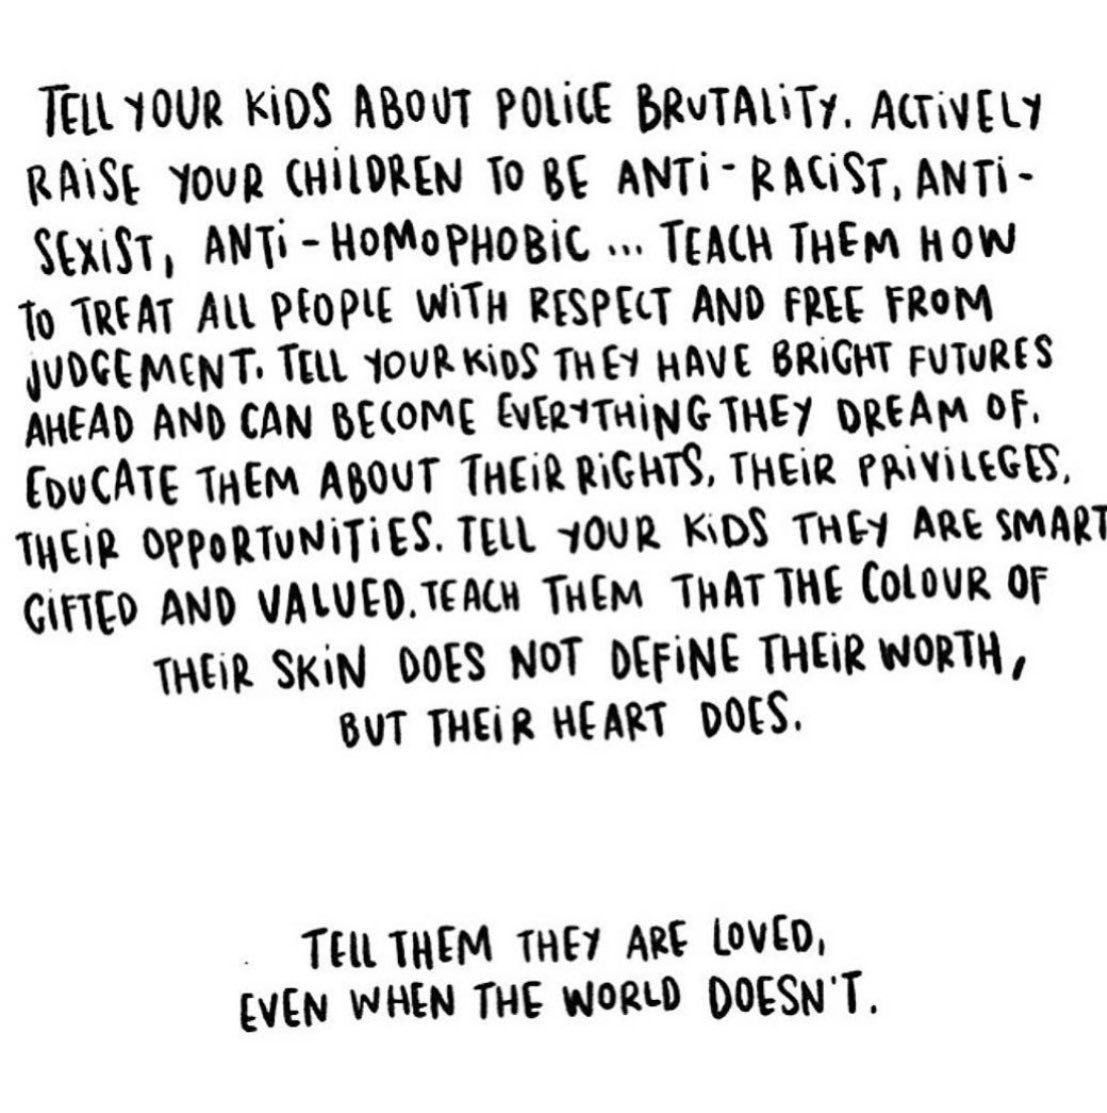 TELL YOUR KiDS ABOUT POLiCE BRUTALiTY. ACTiVELY
RAiSE YOUR CHiLDREN TO BE ANTi-RACiST, ANTi-
SEXiST, ANTi-HOMOPHOBiC ... TEACH THEM HOW
TO TREAT ALL PEOPLE WiTH RESPECT AND FREE FROM
JUDGEMENT. TELL YOUR KiDS THEY HAVE BRiGHT FUTURES
AHEAD AND CAN BECOME EVERYTHiNG THEY DREAM OF.
EDUCATE THEM ABOUT THEiR RiGHTS, THEiR PRiViLEGES,
THEiR OPPORTUNiTiES. TELL YOUR KiDS THEY ARE SMART
GiFTED AND VALUED. TEACH THEM THAT THE COLOUR OF
THEiR SKiN DOES NOT DEFiNE THEiR WORTH,
BUT THEiR HEART DOES.
TELL THEM THEY ARE LOVED,
EVEN WHEN THE WORLD DOESN'T.